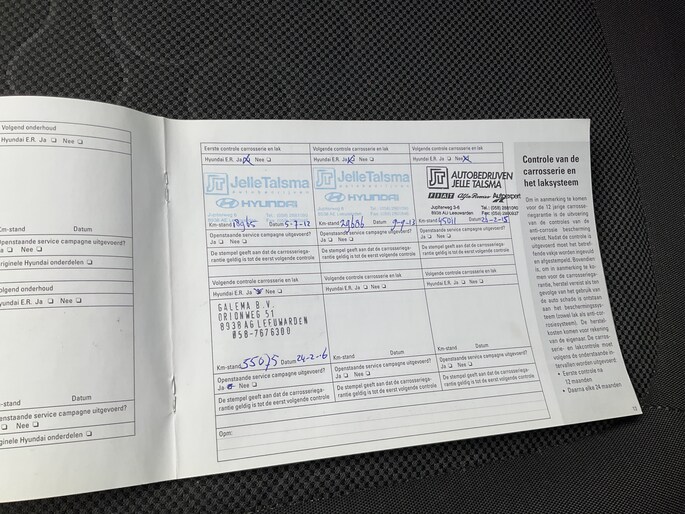 Volgend onderhoud
Hyundai E.R. Ja ☐ Nee ☐
Km-stand Datum
Openstaande service campagne uitgevoerd?
Ja ☐ Nee ☐
Originele Hyundai onderdelen ☐
Volgend onderhoud
Hyundai E.R. Ja ☐ Nee ☐
Km-stand Datum
Openstaande service campagne uitgevoerd?
Ja ☐ Nee ☐
Originele Hyundai onderdelen ☐
Eerste controle carrosserie en lak
Hyundai E.R. Ja ☒ Nee ☐
JT JelleTalsma
autobedrijven
HYUNDAI
Jupiterweg
Km-stand Datum 5-7-12
Openstaande service campagne uitgevoerd?
Ja ☐ Nee ☐
De stempel geeft aan dat de carrosseriega-
rantie geldig is tot de eerst volgende controle
Volgende controle carrosserie en lak
Hyundai E.R. Ja ☒ Nee ☐
JT JelleTalsma
autobedrijven
HYUNDAI
Jupiterweg
Km-stand Datum
Openstaande service campagne uitgevoerd?
Ja ☐ Nee ☐
De stempel geeft aan dat de carrosseriega-
rantie geldig is tot de eerst volgende controle
Volgende controle carrosserie en lak
Hyundai E.R. Ja ☐ Nee ☒
JT AUTOBEDRIJVEN
JELLE TALSMA
FIAT Alfa Romeo Autoexpert
Jupiterweg 3-6
8938 AD Leeuwarden
Km-stand 45011 Datum
Openstaande service campagne uitgevoerd?
Ja ☐ Nee ☐
De stempel geeft aan dat de carrosseriega-
rantie geldig is tot de eerst volgende controle
Volgende controle carrosserie en lak
Hyundai E.R. Ja ☒ Nee ☐
GALEMA B.V.
ORIONWEG 51
8938AG LEEUWARDEN
058-7676300
Km-stand 55075 Datum 24-2-16
Openstaande service campagne uitgevoerd?
Ja ☒ Nee ☐
De stempel geeft aan dat de carrosseriega-
rantie geldig is tot de eerst volgende controle
Volgende controle carrosserie en lak
Hyundai E.R. Ja ☐ Nee ☐
Km-stand Datum
Openstaande service campagne uitgevoerd?
Ja ☐ Nee ☐
De stempel geeft aan dat de carrosseriega-
rantie geldig is tot de eerst volgende controle
Volgende controle carrosserie en lak
Hyundai E.R. Ja ☐ Nee ☐
Km-stand Datum
Openstaande service campagne uitgevoerd?
Ja ☐ Nee ☐
De stempel geeft aan dat de carrosseriega-
rantie geldig is tot de eerst volgende controle
Opm:
Controle van de
carrosserie en
het laksysteem
Om in aanmerking te komen
voor de 12 jarige carrosse-
riegarantie is de uitvoering
van de controles van de
anti-corrosie bescherming
vereist. Nadat de controle is
uitgevoerd moet het betref-
fende vakje worden ingevuld
en afgestempeld. Bovendien
is, om in aanmerking te ko-
men voor de carrosserie-
garantie, herstel vereist als ten
gevolge van het gebruik van
de auto schade is ontstaan
aan het beschermingssys-
teem (zowel lak als anti-cor-
rosiesysteem). De herstel-
kosten komen voor rekening
van de eigenaar. De carros-
serie- en lakcontrole moet
volgens de onderstaande in-
tervallen worden uitgevoerd:
• Eerste controle na
12 maanden
• Daarna elke 24 maanden